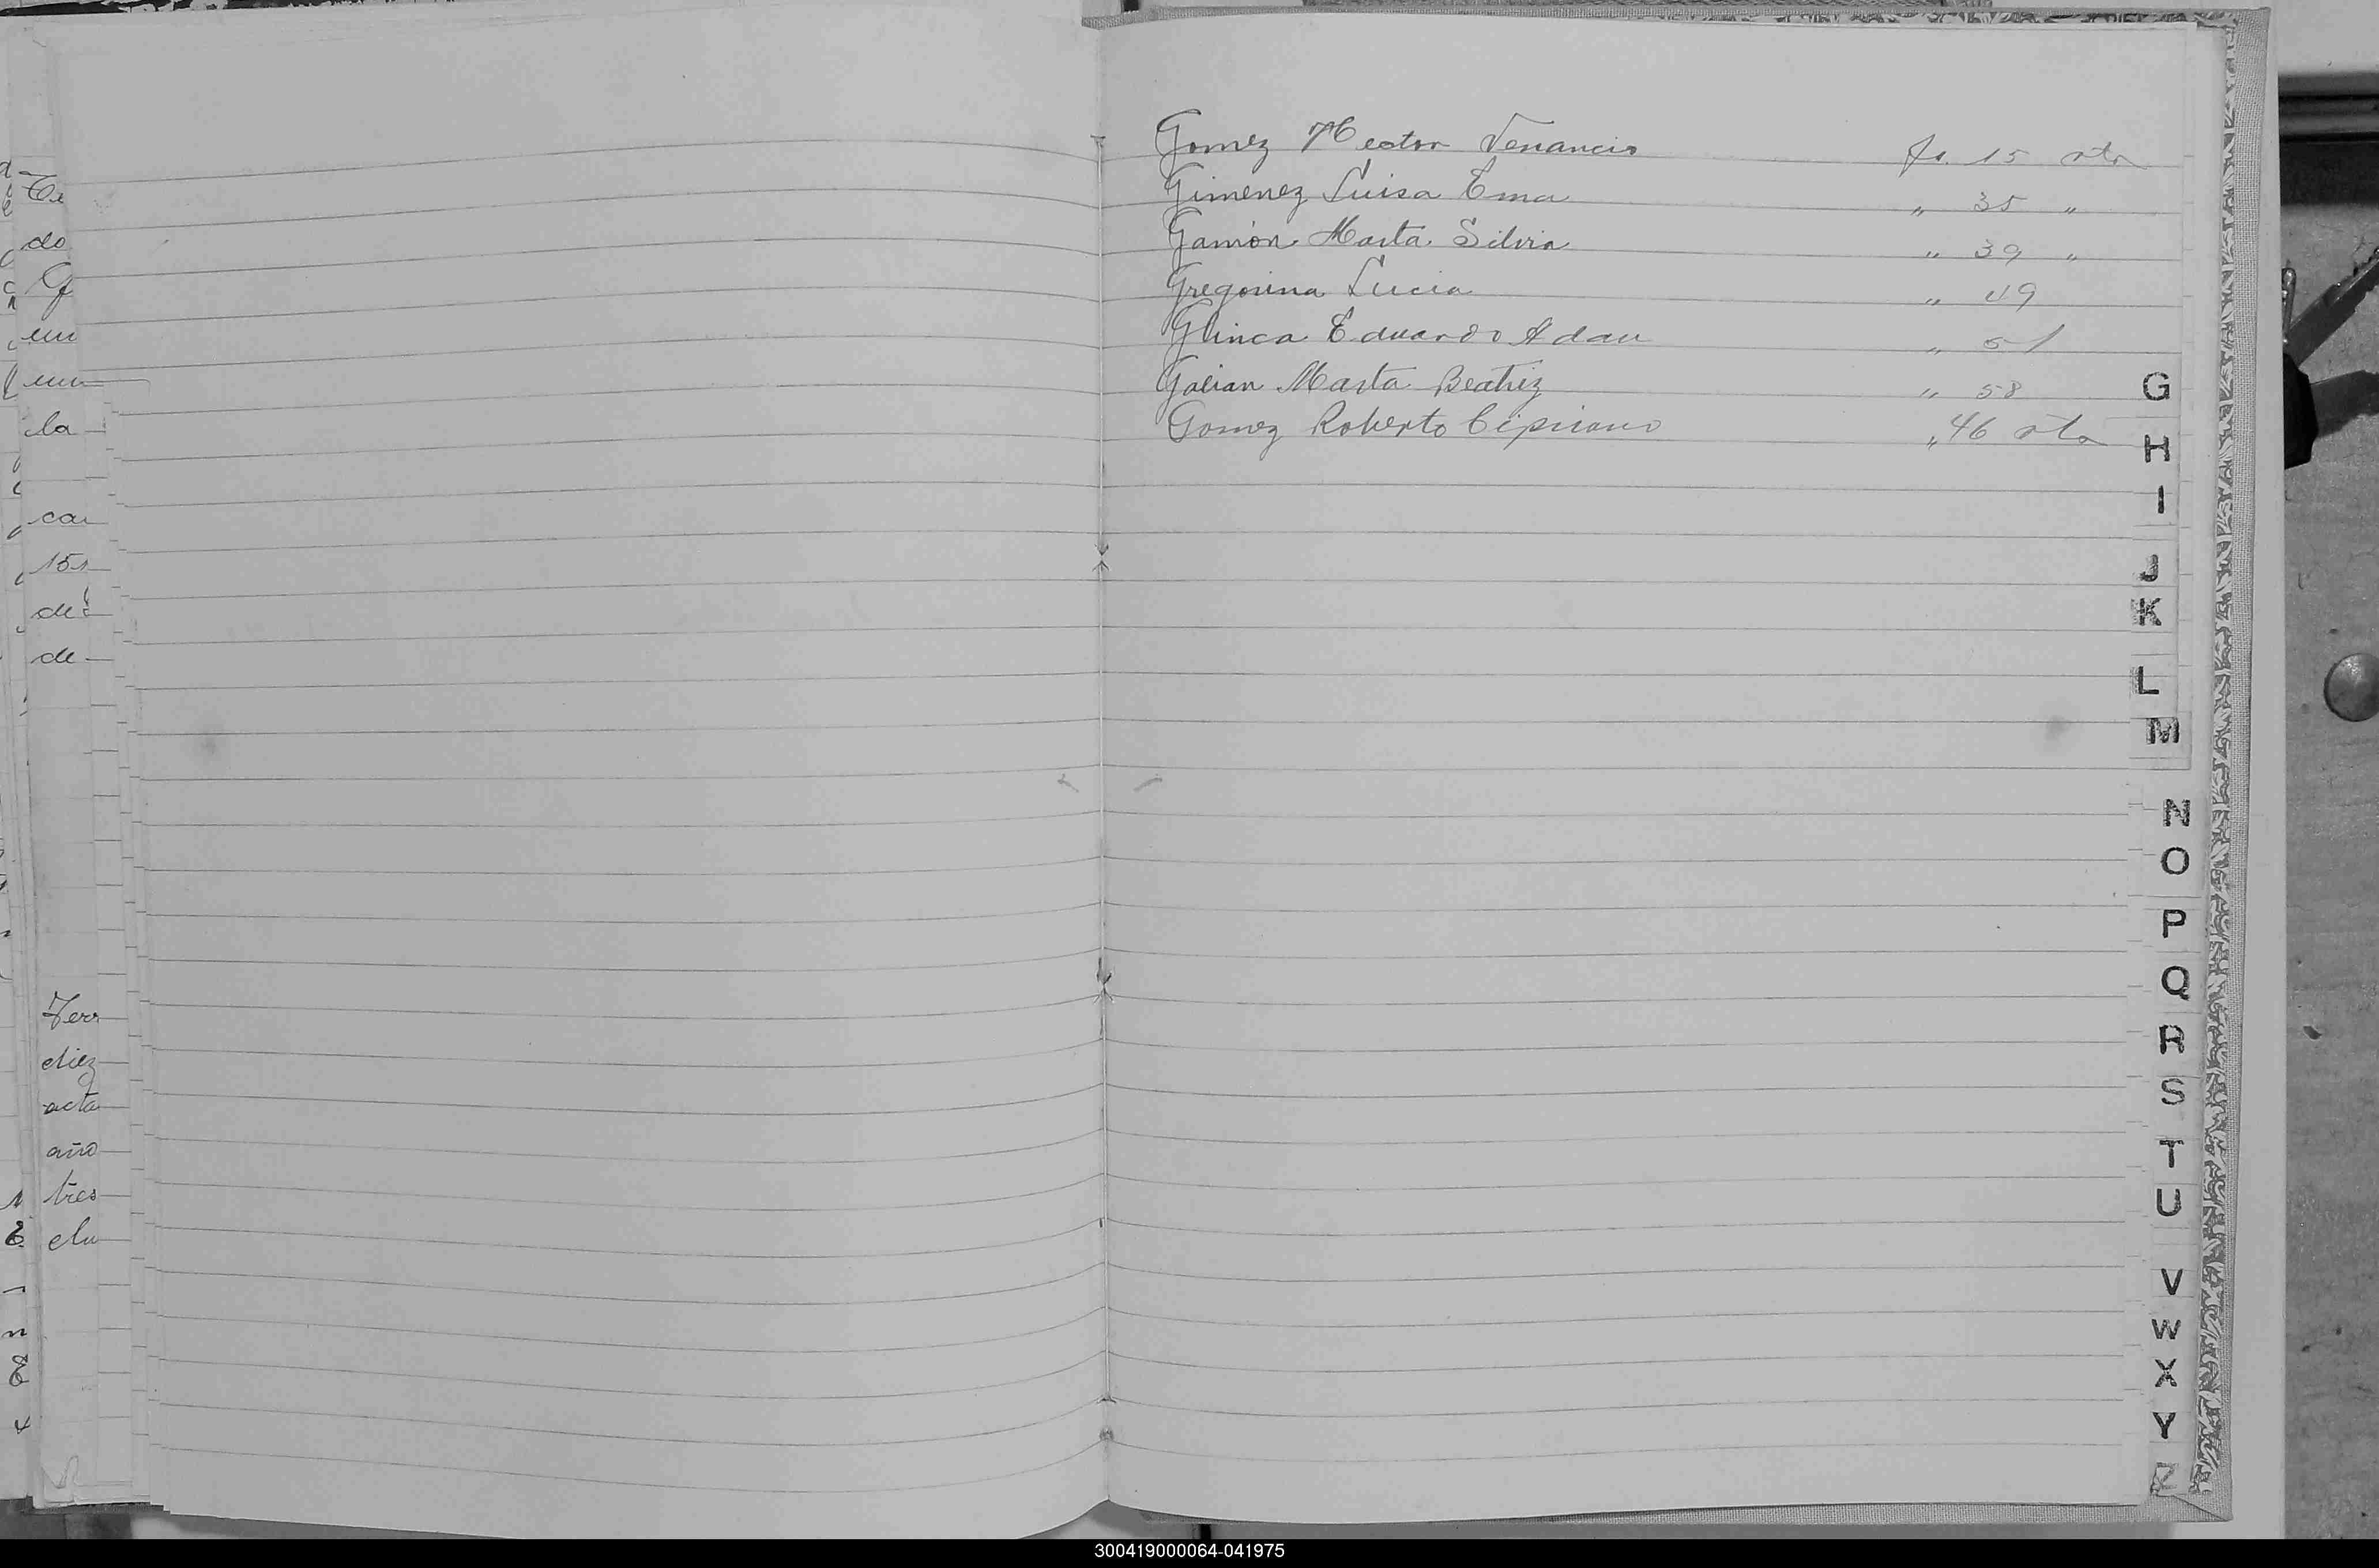 Gomez Hector Venancio fs. 15 vta
Gimenez Luisa Ema " 35 "
Gamón Marta Silvia " 39 "
Gregorina Lucia " 49
Glinca Eduardo Adan " 51
Galian Marta Beatriz " 58
Gomez Roberto Cipriano " 46 vta
do
la
151
de
de
diez
acta
año
tres
G
H
I
J
K
L
M
N
O
P
Q
R
S
T
U
V
W
X
Y
Z
300419000064-041975